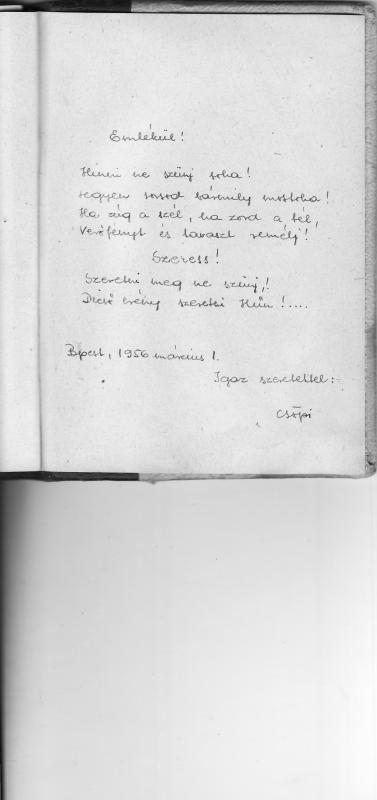 Emlékül!
Hinni ne szűnj soha!
legyen sorsod bármily mostoha!
Ha zúg a szél, ha zord a tél,
Verőfényt és tavaszt remélj!
Szeress!
Szeretni meg ne szűnj!
Dicső erény szeretni Hűn!....
Bpest, 1956 március 1.
Igaz szeretettel:
Csöpi